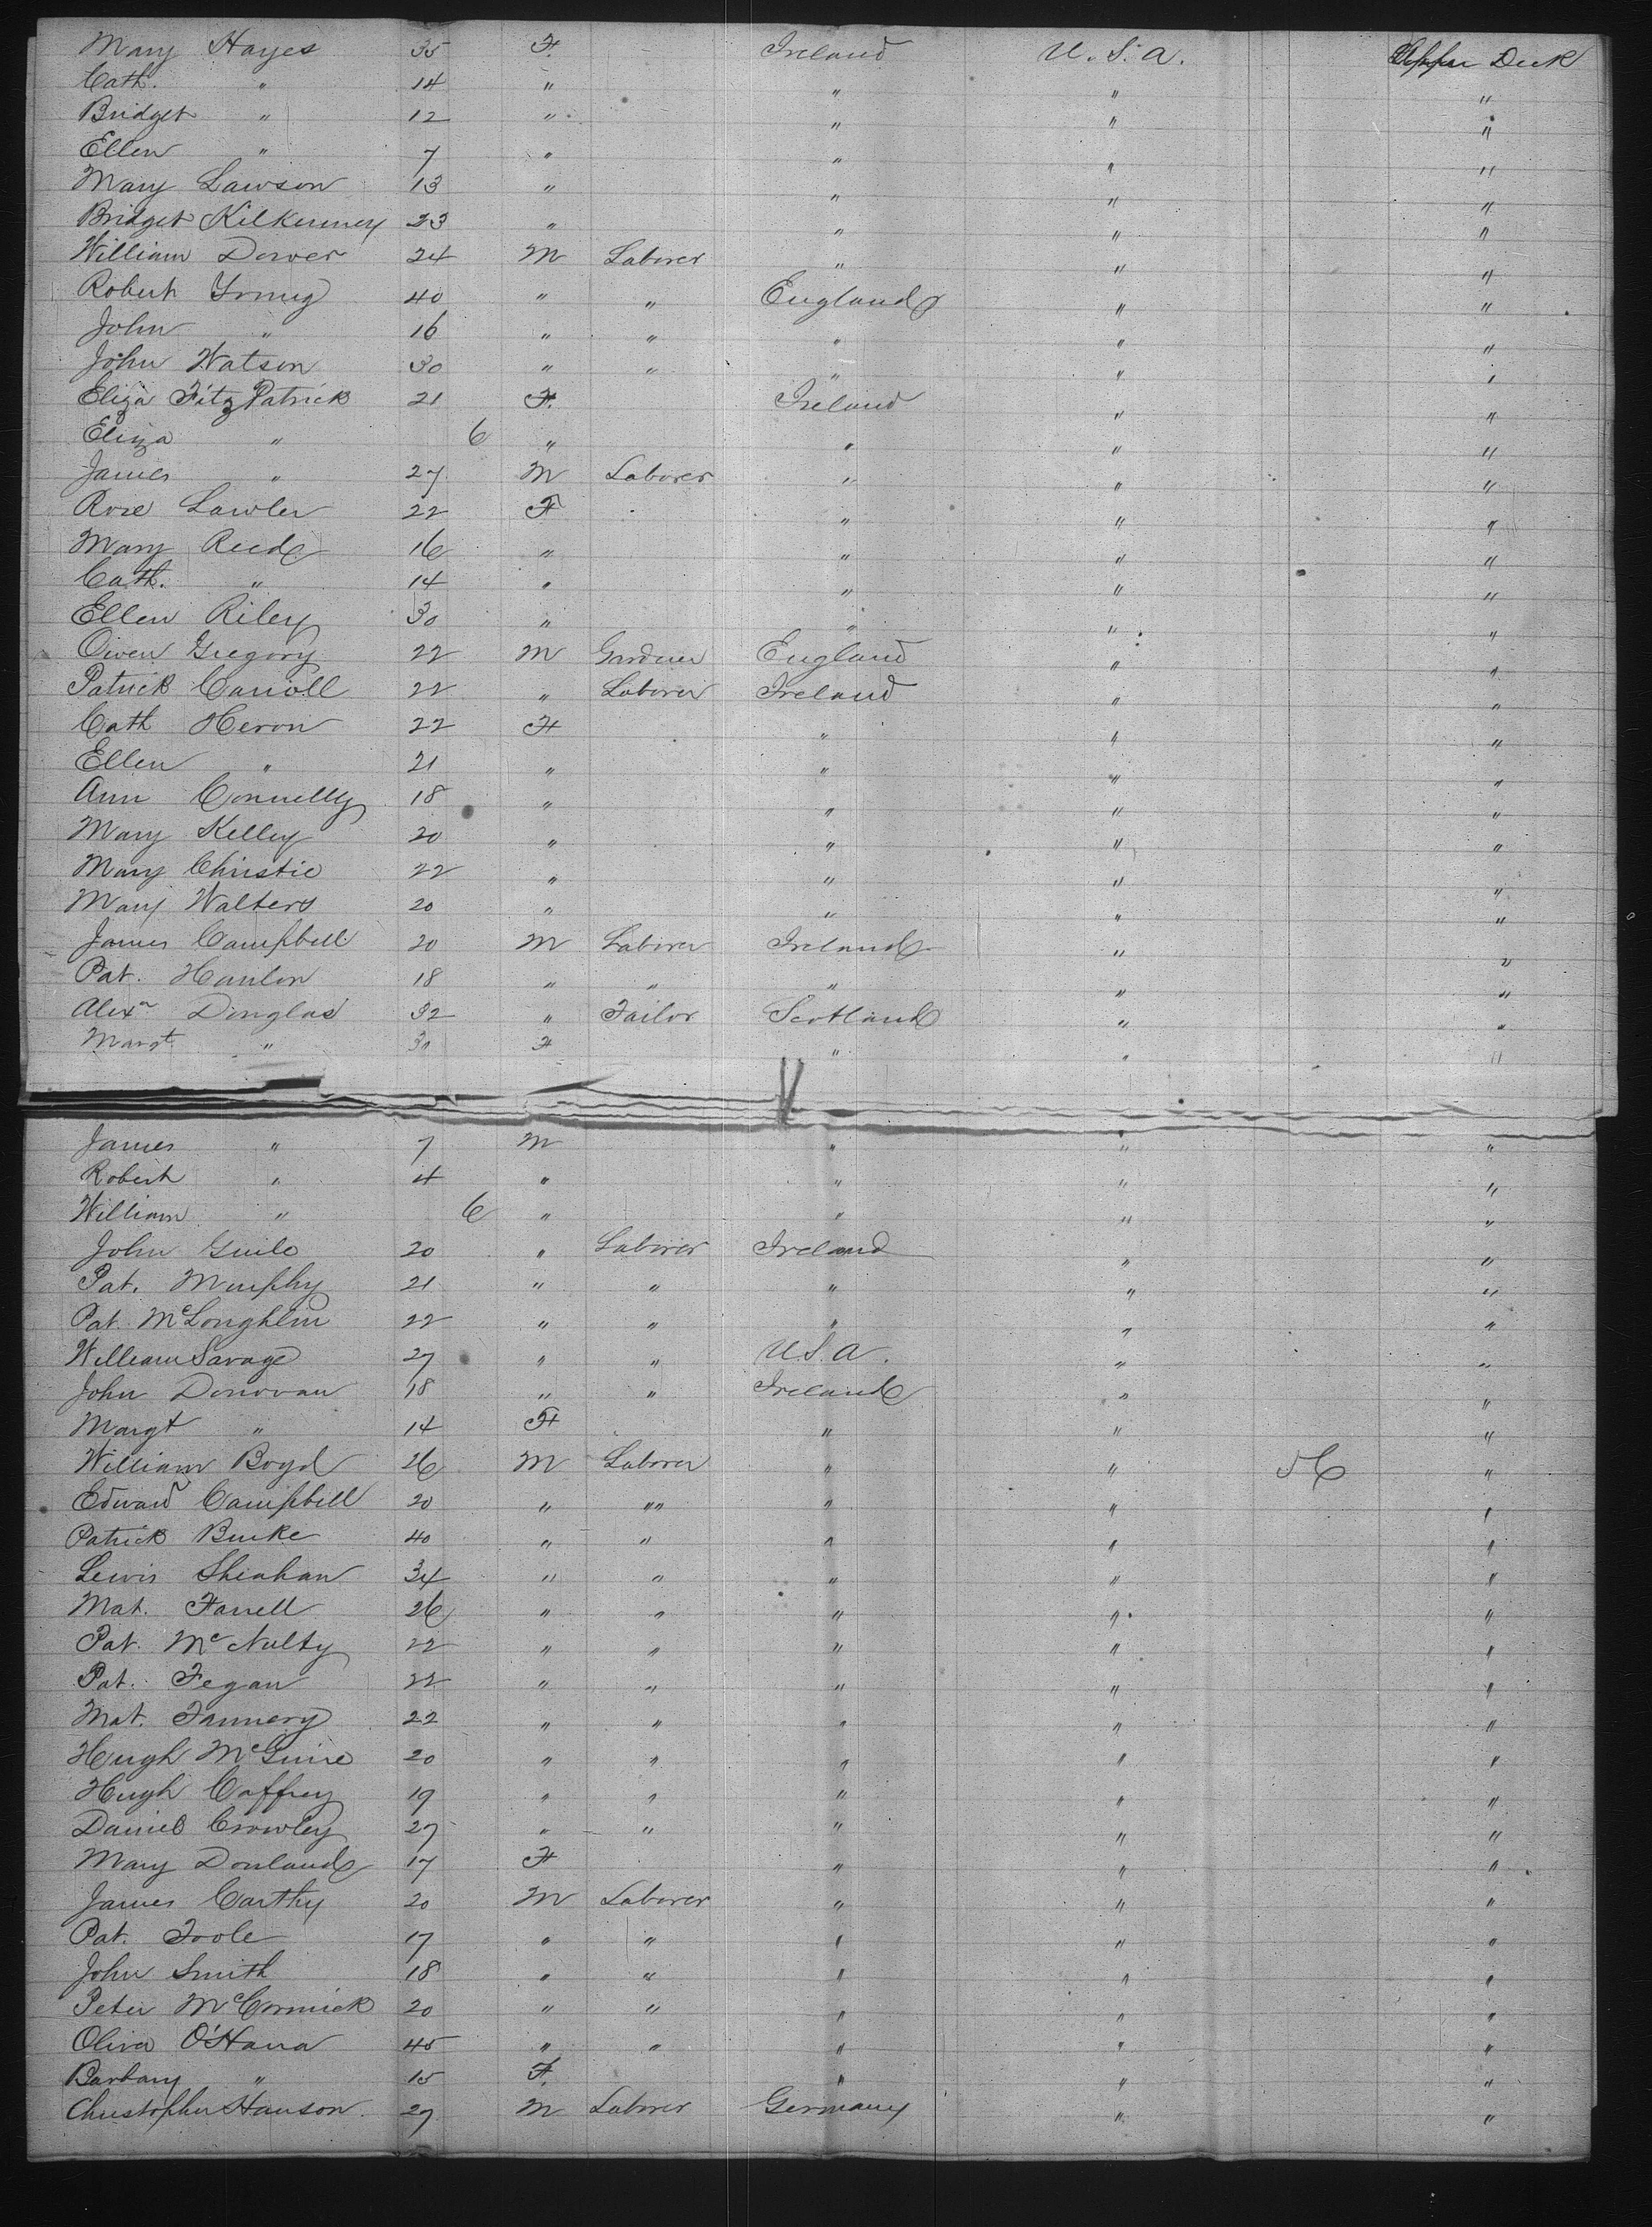 Mary Hayes 35 F. Ireland U.S.A. Upper Deck
Cath. " 14 " " " "
Bridget " 12 " " " "
Ellen " 7 " " " "
Mary Lawson 13 " " " "
Bridget Kilkenney 23 " " " "
William Dower 24 M Laborer " " "
Robert Young 40 " " England " "
John " 16 " " " " "
John Watson 30 " " " " "
Eliza FitzPatrick 21 F. Ireland " "
Eliza " 6 " " " "
James " 27 M Laborer " " "
Rose Lawler 22 F " " "
Mary Reed 16 " " " "
Cath. " 14 " " " "
Ellen Riley 30 " " " "
Owen Gregory 22 M Gardner England " "
Patrick Carroll 22 " Laborer Ireland " "
Cath Heron 22 F " " "
Ellen " 21 " " " "
Ann Connelly 18 " " " "
Mary Kelley 20 " " " "
Mary Christie 22 " " " "
Mary Walters 20 " " " "
James Campbell 20 M Laborer Ireland " "
Pat. Hanlon 18 " " " " "
Alexr Douglas 32 " Tailor Scotland " "
Margt. " F " " "
James " 7 M " " "
Robert " 4 " " " "
William " 6 " " " "
John Guile 20 " Laborer Ireland " "
Pat. Murphy 21 " " " " "
Pat. McLoughlin 22 " " " " "
William Savage 27 " " U.S.A. " "
John Donovan 18 " " Ireland " "
Margt " 14 F " " "
William Boyd 26 M Laborer " " "
Edward Campbell 20 " "" " " "
Patrick Burke 40 " " " " "
Lewis Sheahan 34 " " " " "
Mat. Farrell 26 " " " " "
Pat. McNulty 22 " " " " "
Pat. Fegan 22 " " " " "
Mat. Tannery 22 " " " " "
Hugh McGuire 20 " " " " "
Hugh Caffrey 19 " " " " "
Daniel Crowley 27 " " " " "
Mary Donland 17 F " " "
James Carthy 20 M Laborer " " "
Pat. Toole 17 " " " " "
John Smith 18 " " " " "
Peter McCormick 20 " " " " "
Oliver O'Hara 45 " " " " "
Barbary " 15 F. " " "
Christopher Hanson. 27 M Laborer Germany " "